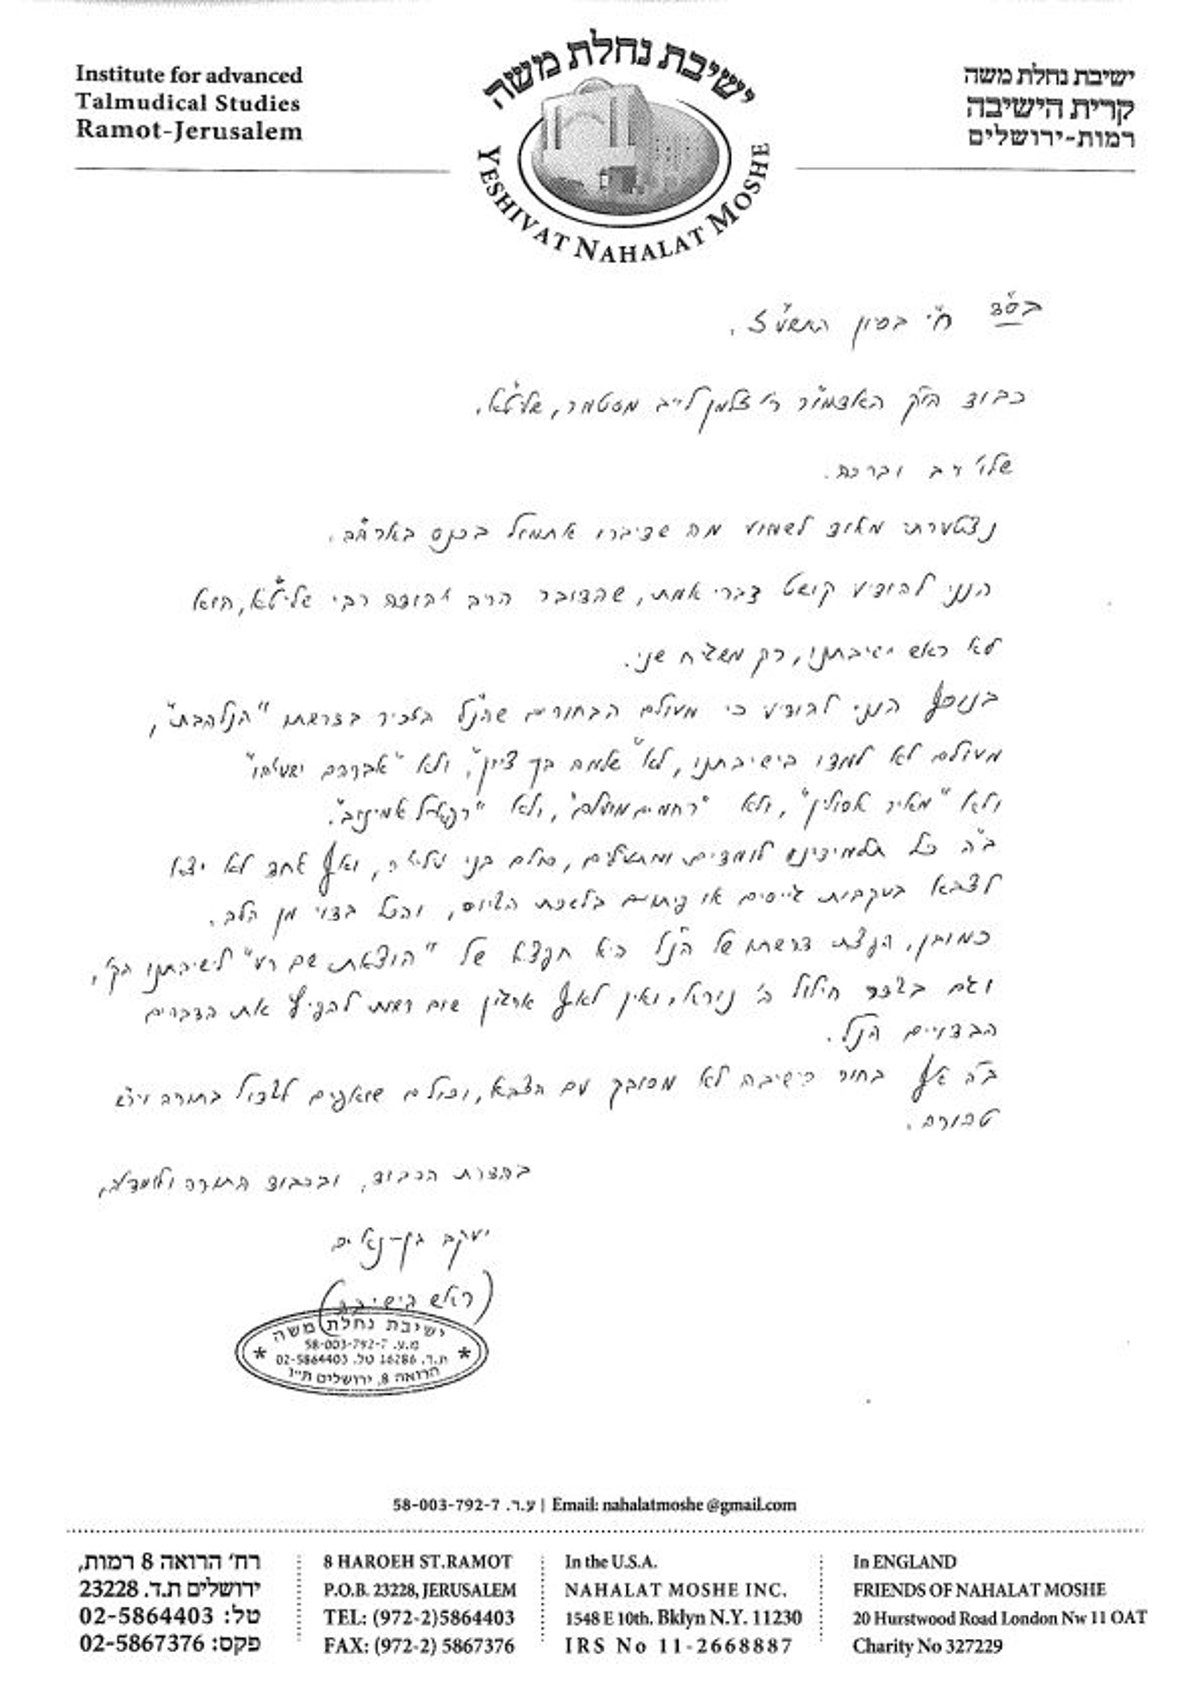 Institute for advanced
Talmudical Studies
Ramot-Jerusalem
ישיבת נחלת משה
YESHIVAT NAHALAT MOSHE
ישיבת נחלת משה
קרית הישיבה
רמות-ירושלים
בס"ד ח"י בסיון התשע"ז.
כבוד הי"ק האדמו"ר ר' זלמן לייב מסטמר, שליט"א.
שלו' רב וברכה.
נצטערתי מאוד לשמוע מה שדיברו אתמול בכנס בארה"ב.
הנני להודיע קושט דברי אמת, שהדובר הרב יהודה רבי שליט"א, הוא
לא ראש ישיבתנו, רק משגיח שני.
בנוסף הנני להודיע כי מעולם הבחורים שהנ"ל הזכיר בדרשתו "הנלהבת",
מעולם לא למדו בישיבתנו, לא "שלמה בן ציון", ולא "אברהם ישעיהו"
ולא "מאיר אסולין", ולא "רחמים", ולא "רפאל אמינוב".
ב"ה כל תלמידינו לומדים ומתעלים, כולם בני עליה, ואף אחד לא יצא
לצבא בעקבות גייסים או פיתוים בלשכת הגיוס, והכל בדוי מן הלב.
כמובן, הפצת דרשתו של הנ"ל היא חפצא של "הוצאת שם רע" לישיבתנו הק',
וגם בגדר חילול ה' נורא, ואין לאף ארגון שום רשות להפיץ את הדברים
הבדויים הנ"ל.
ב"ה אף בחור בישיבה לא מסובך עם הצבא, וכולם שואפים לגדול בתורה ויר"ש
טהורה.
בהדרת הכבוד, ובכבוד התורה ולומדיה,
יעקב בן-נאים
(ראש הישיבה)
ישיבת נחלת משה
מ.ע. 58-003-792-7
ת.ד. 16286 טל. 02-5864403
הרואה 8, ירושלים ת"ו
58-003-792-7 ע.ר. | Email: nahalatmoshe@gmail.com
רח' הרואה 8 רמות,
ירושלים ת.ד. 23228
טל: 02-5864403
פקס: 02-5867376
8 HAROEH ST.RAMOT
P.O.B. 23228, JERUSALEM
TEL: (972-2)5864403
FAX: (972-2) 5867376
In the U.S.A.
NAHALAT MOSHE INC.
1548 E 10th. Bklyn N.Y. 11230
IRS No 11-2668887
In ENGLAND
FRIENDS OF NAHALAT MOSHE
20 Hurstwood Road London Nw 11 OAT
Charity No 327229